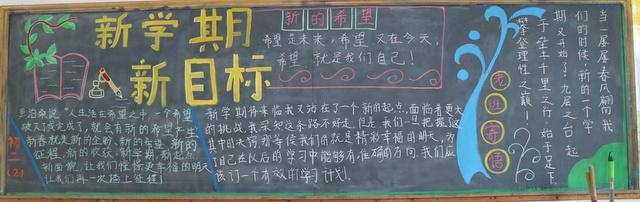 新学期
新目标
新的希望
希望是未来,希望又在今天,
希望 就是我们自己!
莫泊桑说“人生活在希望之中一个希望
破灭或完成了,就会有新的希望产生
新春就是新的企盼,新的希望 新的
征程,新的收获,新学期,新起点
新面貌,让我们憧憬更幸福的明天
让我们再一次踏上征程!
初二(2)
新学期将来临我又站在了一个新的起点,面临着更大
的挑战,我深知这条路不好走,但是我们一旦把握这
其中的大窍那等待我们的就是精彩幸福的明天,为
了自己在以后的学习中能够有准确的方向,我们应
该订一个有效的学习计划.
老班寄语
当一屡屡春风翩向我
们的时候,新的一个学
期又开始了,九层之台 起
于垒土千里之行 始于足下
攀登理性之巅!